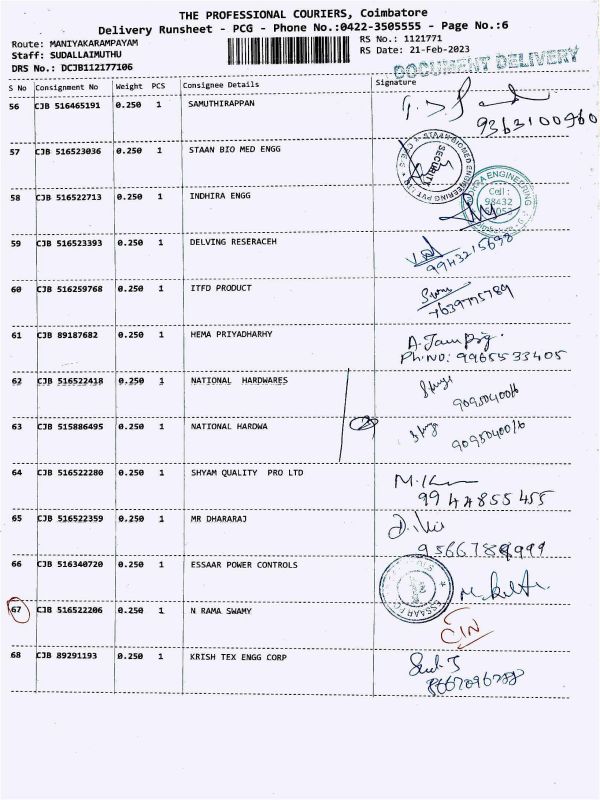 THE PROFESSIONAL COURIERS, Coimbatore
Delivery Runsheet - PCG - Phone No.:0422-3505555 - Page No.:6
Route: MANIYAKARAMPAYAM
RS No.: 1121771
Staff: SUDALLAIMUTHU
RS Date: 21-Feb-2023
DRS No.: DCJB112177106
DOCUMENT DELIVERY
S No Consignment No Weight PCS Consignee Details Signature
56 CJB 516465191 0.250 1 SAMUTHIRAPPAN
9363100960
57 CJB 516523036 0.250 1 STAAN BIO MED ENGG
SECURITY
58 CJB 516522713 0.250 1 INDHIRA ENGG
Cell:
98432
59 CJB 516523393 0.250 1 DELVING RESERACEH
9943215698
60 CJB 516259768 0.250 1 ITFD PRODUCT
7639775789
61 CJB 89187682 0.250 1 HEMA PRIYADHARHY
Ph.NO: 9965533405
62 CJB 516522418 0.250 1 NATIONAL HARDWARES
63 CJB 515886495 0.250 1 NATIONAL HARDWA
64 CJB 516522280 0.250 1 SHYAM QUALITY PRO LTD
65 CJB 516522359 0.250 1 MR DHARARAJ
66 CJB 516340720 0.250 1 ESSAAR POWER CONTROLS
67 CJB 516522206 0.250 1 N RAMA SWAMY
CIN
68 CJB 89291193 0.250 1 KRISH TEX ENGG CORP